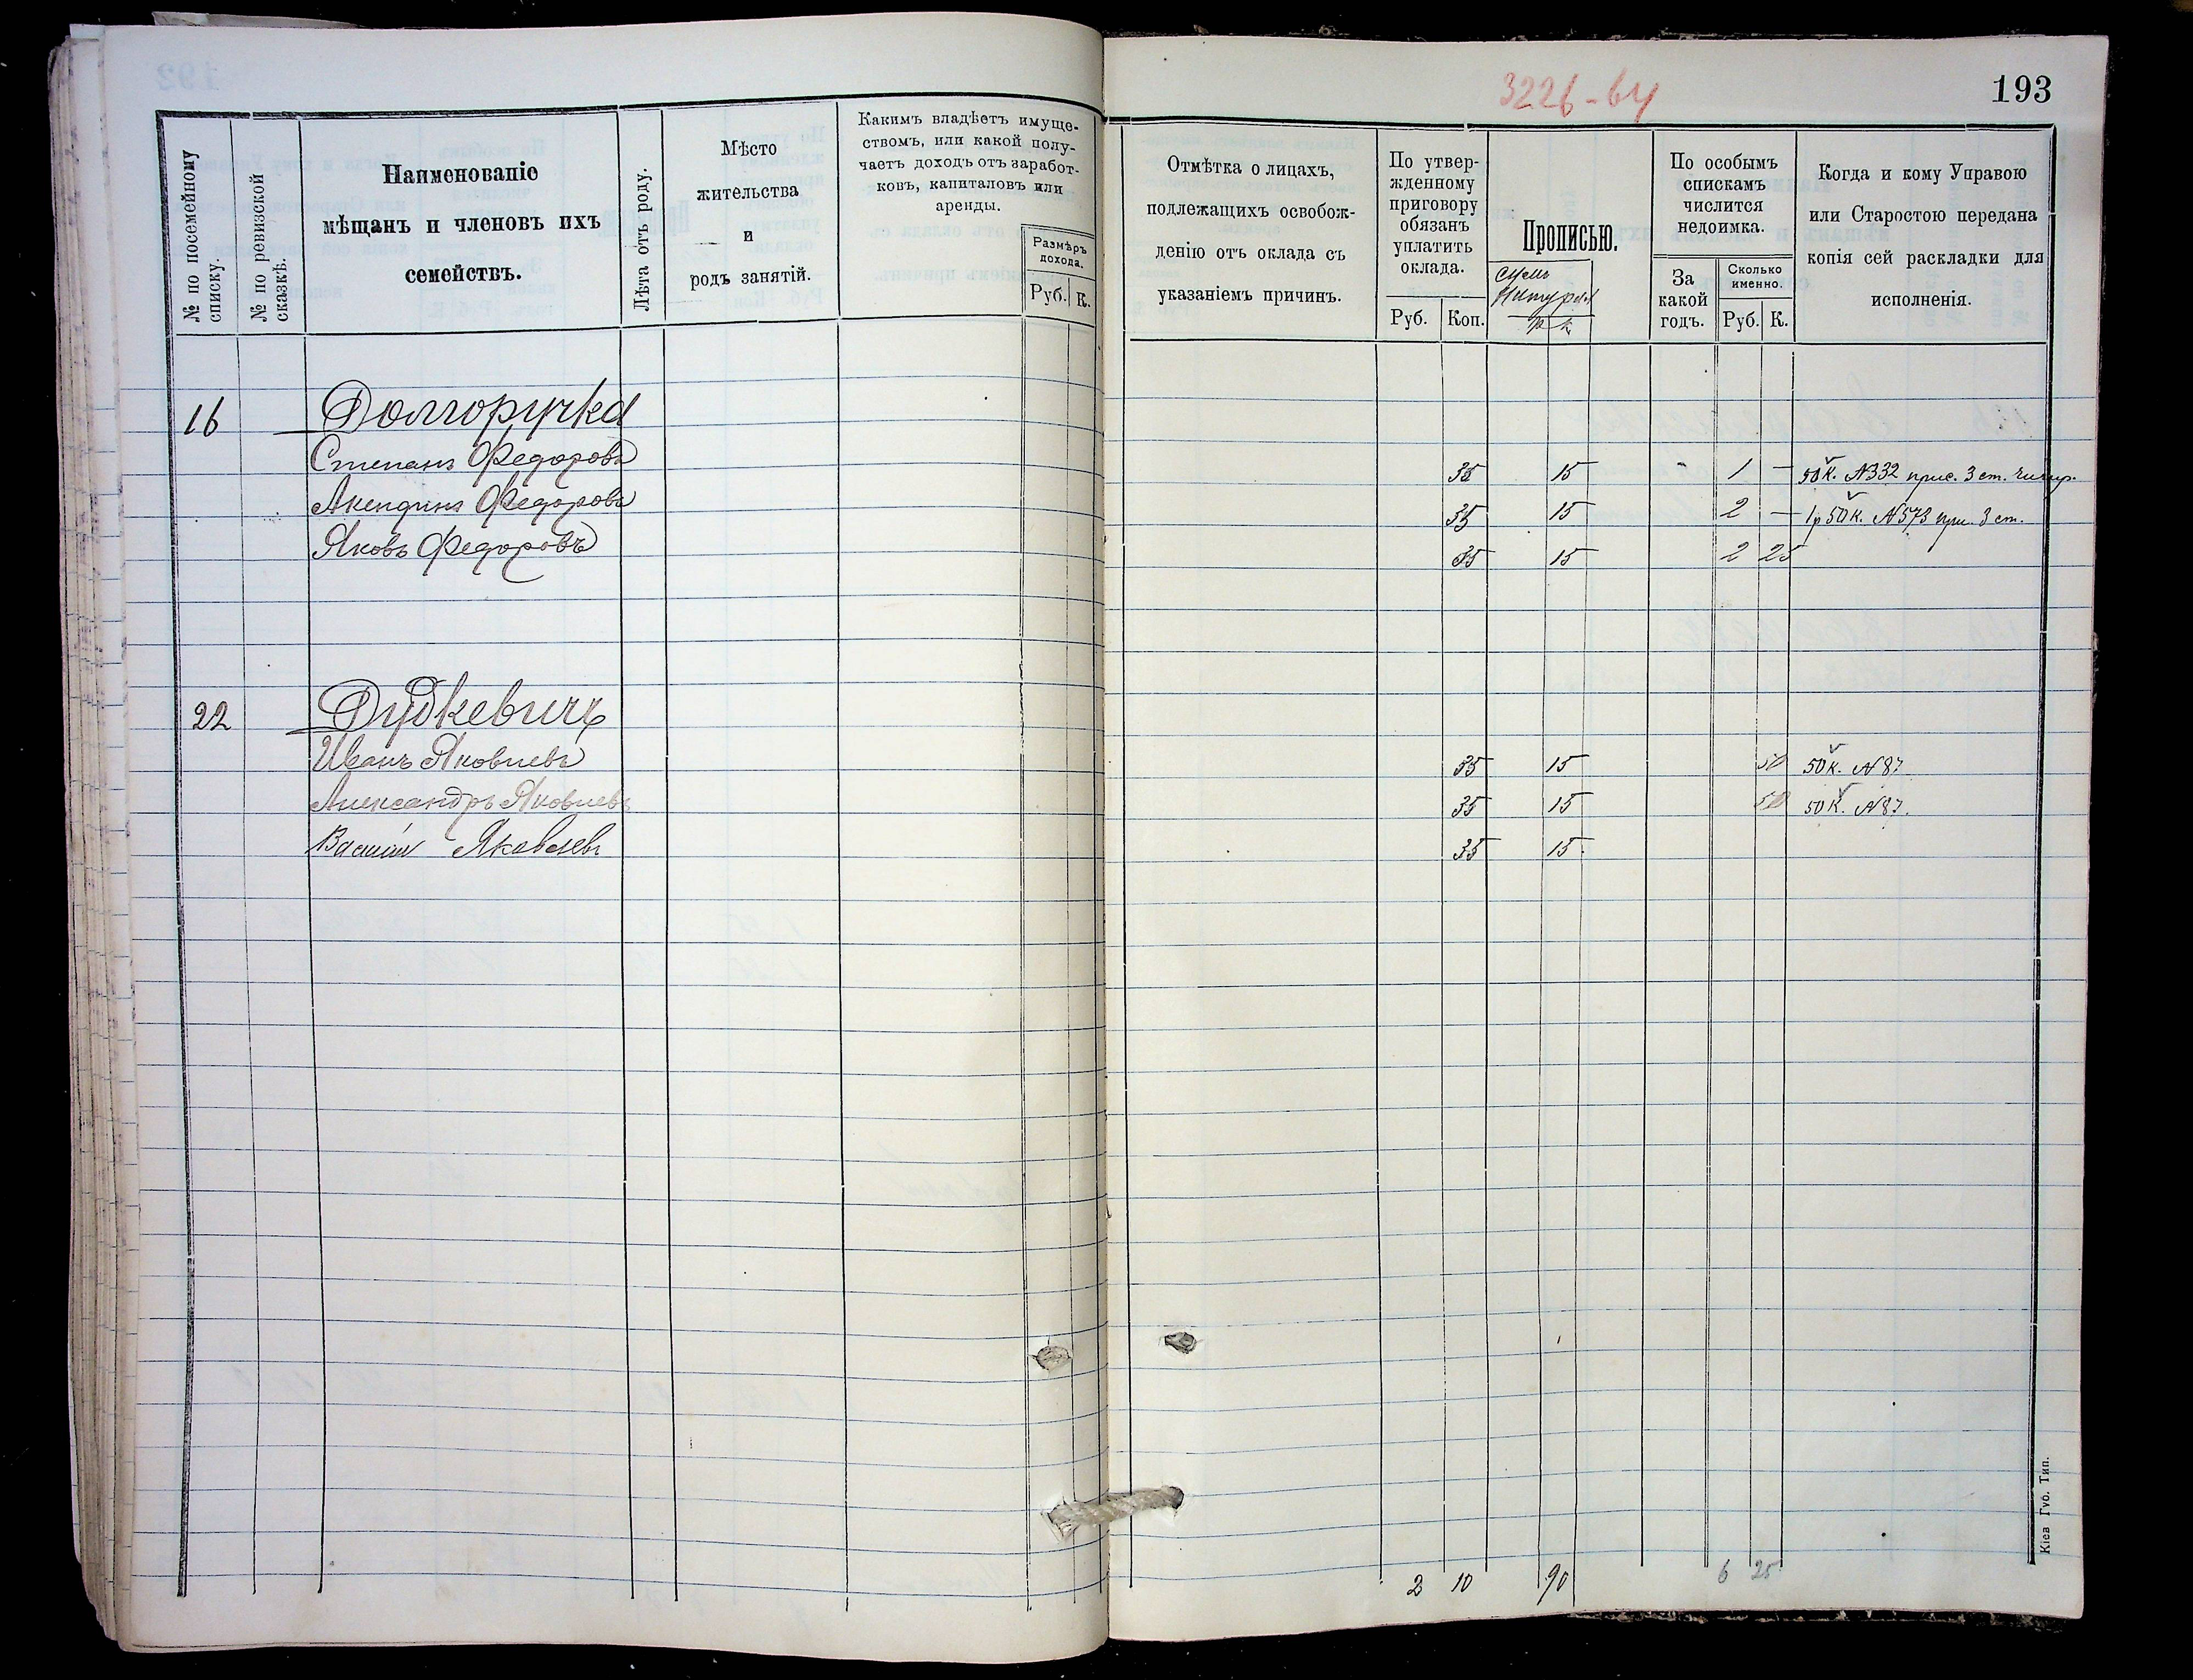 193
3226-64
№ по посемейному списку.
№ по ревизской сказкѣ.
Наименованіе
мѣщанъ и членовъ ихъ
семействъ.
Лѣта отъ роду.
Мѣсто
жительства
и
родъ занятій.
Какимъ владѣетъ имуще-
ствомъ, или какой полу-
чаетъ доходъ отъ заработ-
ковъ, капиталовъ или
аренды.
Размѣръ
дохода.
Руб. К.
Отмѣтка о лицахъ,
подлежащихъ освобож-
денію отъ оклада съ
указаніемъ причинъ.
По утвер-
жденному
приговору
обязанъ
уплатить
оклада.
Руб. Коп.
Прописью.
р к
По особымъ
спискамъ
числится
недоимка.
За
какой
годъ.
Сколько
именно.
Руб. К.
Когда и кому Управою
или Старостою передана
копія сей раскладки для
исполненія.
16 Долгоручка
Степанъ Федоровъ 35 15 1 — 50 к. №332 прис. 3 ст.
Акендинъ Федоровъ 35 15 2 — 1 р 50 к. №573 при. 3 ст.
Яковъ Федоровъ 35 15 2 25
22 Дудкевичъ
Иванъ Яковлевъ 35 15 50 50 к. №87
Александръ Яковлевъ 35 15 50 50 к. №87.
Василій Яковлевъ 35 15
2 10 90 6 25
Кіев Губ. Тип.